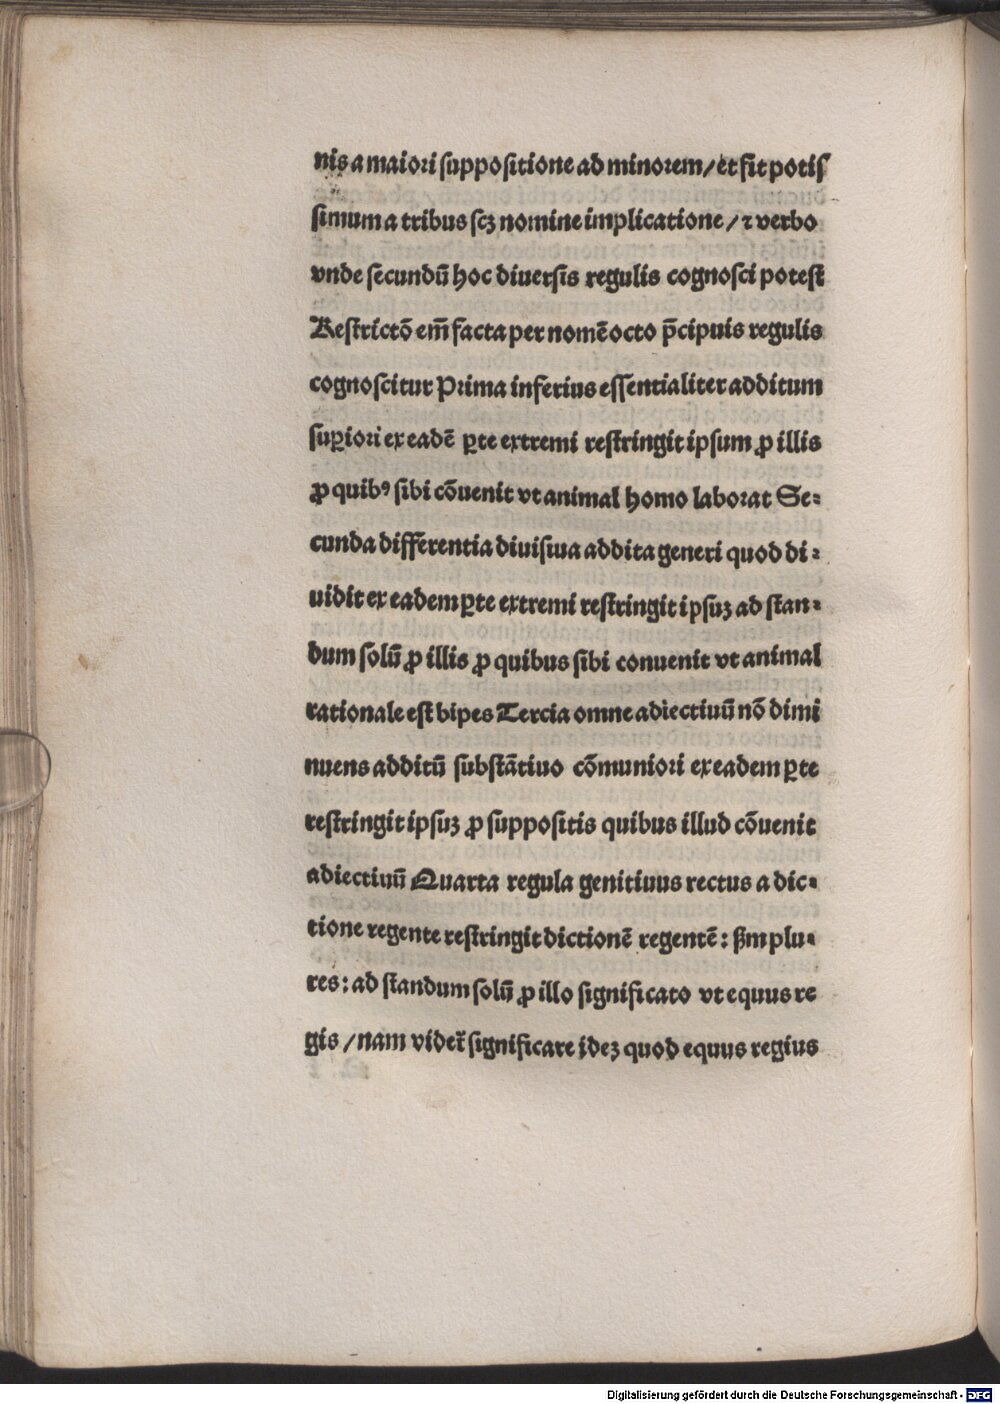 nis a maiori ſuppoſitione ad minorem/ et fit potiſ
ſimum a tribus ſcꝫ nomine implicatione / ⁊ verbo
vnde ſecundū hoc diuerſis regulis cognoſci poteſt
Reſtrictō em̄ facta per nomē octo p̄cipuis regulis
cognoſcitur Prima inferius eſſentialiter additum
ſuꝑiori ex eadē ꝑte extremi reſtringit ipſum ꝓ illis
ꝓ quibꝰ ſibi cōuenit vt animal homo laborat Se⸗
cunda differentia diuiſiua addita generi quod di⸗
uidit ex eadem ꝑte extremi reſtringit ipſuꝫ ad ſtan⸗
dum ſolū ꝓ illis ꝓ quibus ſibi conuenit vt animal
rationale eſt bipes Tercia omne adiectiuū nō dimi
nuens additū ſubſtātiuo cōmuniori ex eadem ꝑte
reſtringit ipſuꝫ ꝓ suppoſitis quibus illud cōuenit
adiectiuū Quarta regula genitiuus rectus a dic⸗
tione regente reſtringit dictionē regentē: ẜm plu⸗
res: ad ſtandum ſolū ꝓ illo ſignificato vt equus re
gis / nam videt᷑ ſignificare ideꝫ quod equus regius
Digitalisierung gefördert durch die Deutsche Forschungsgemeinschaft - DFG